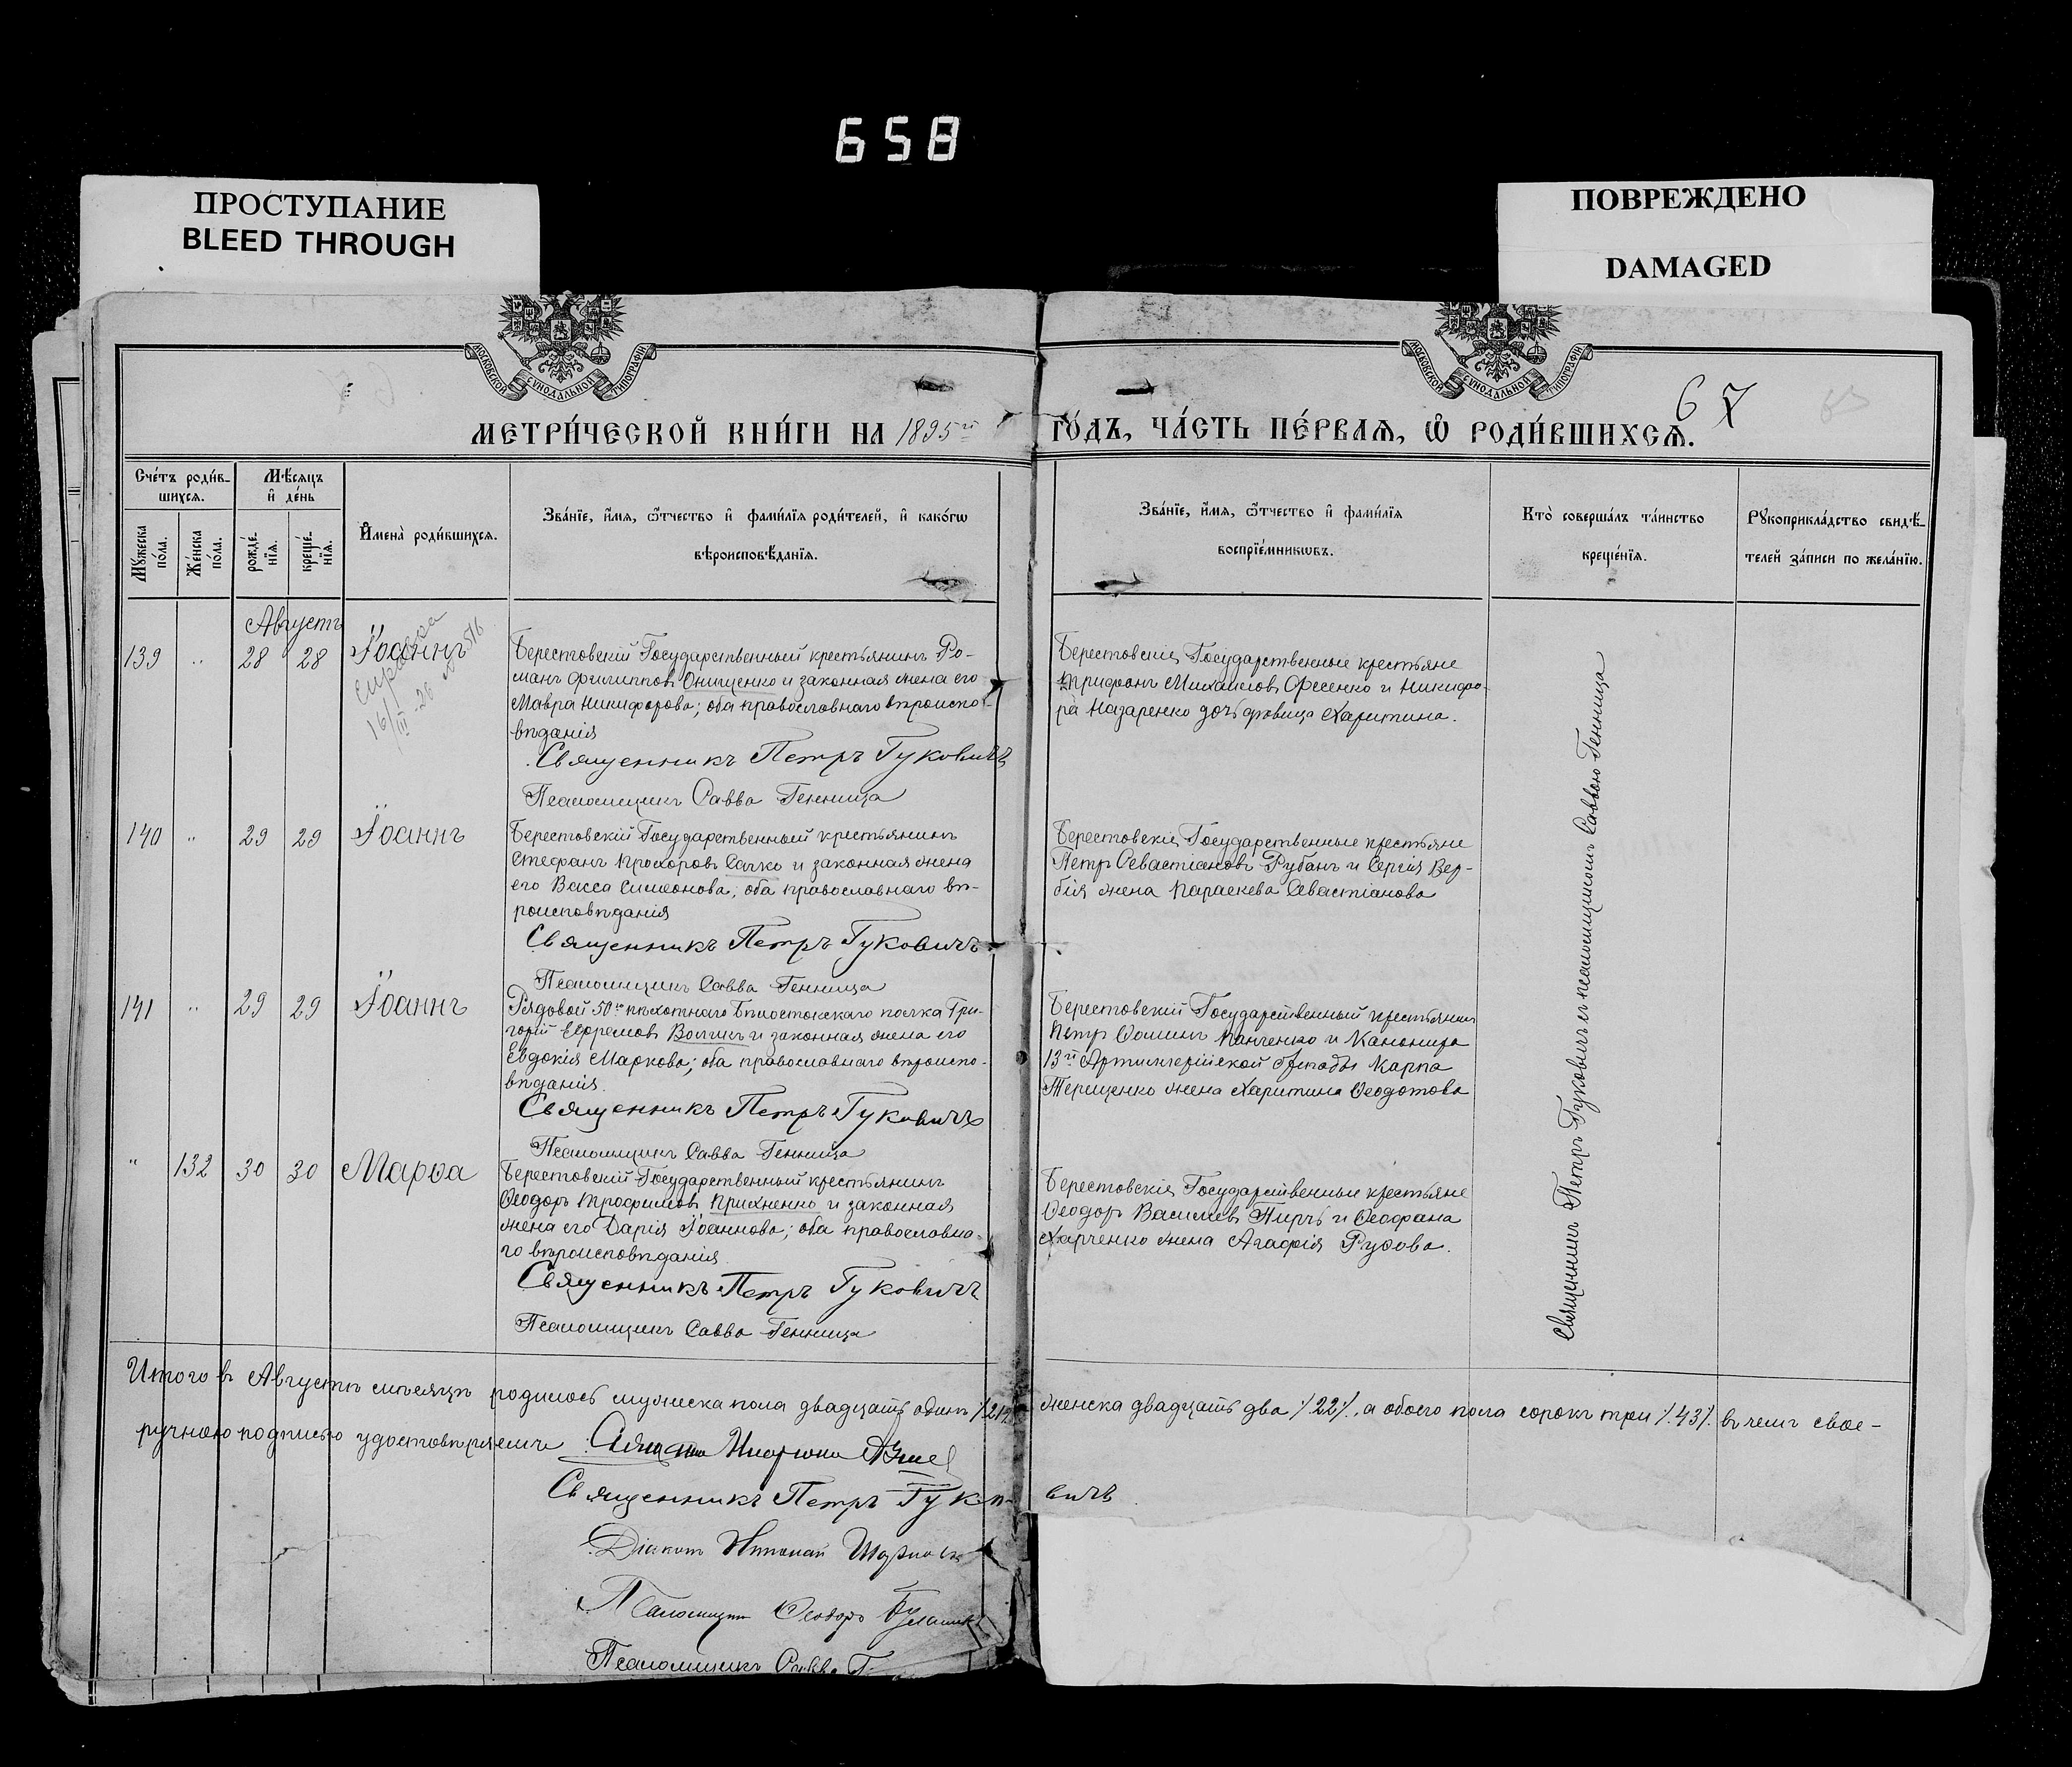 658
ПРОСТУПАНИЕ
BLEED THROUGH
ПОВРЕЖДЕНО
DAMAGED
МОСКОВСКОЙ СУНОДАЛЬНОЙ ТИПОГРАФІИ
МОСКОВСКОЙ СУНОДАЛЬНОЙ ТИПОГРАФІИ
67
МЕТРИ́ЧЕСКОЙ КНИ́ГИ НА 1895й ГО́ДЪ, ЧА́СТЬ ПЕ́РВАЯ, Ѡ҃ РОДИ́ВШИХСЯ.
Сче́тъ роди́в-
шихся.
Му́жеска по́ла.
Же́нска по́ла.
Мѣ́сяцъ
и҆ де́нь
рожде́-
нїя.
креще́-
нїя.
И҆мена̀ роди́вшихся.
Зва́нїе, и҆́мя, ѻ҆́тчество и҆ фами́лїя роди́телей, и҆ како́гѡ
вѣроисповѣ́данїя.
Зва́нїе, и҆́мя, ѻ҆́тчество и҆ фами́лїя
воспрїе́мникѡвъ.
Кто̀ соверша́лъ та́инство
креще́нїя.
Рꙋкоприкла́дство свидѣ́-
телей за́писи по жела́нїю.
Августъ
139 " 28 28 Іоаннъ
справка
16/III-26
Берестовскій Государственный крестьянинъ Ро-
манъ Филипповъ Онищенко и законная жена его
Мавра Никифорова; оба православнаго вѣроиспо-
вѣданія
Священникъ Петръ Гуковичъ
Псаломщикъ Савва Генница
Берестовскіе Государственные крестьяне
Трифонъ Михайловъ Фесенко и Никифо-
ра Назаренко дочь дѣвица Харитина.
140 " 29 29 Іоаннъ
Берестовскій Государственный крестьянинъ
Стефанъ Прохоровъ Сачко и законная жена
его Васса Симеонова, оба православнаго вѣ-
роисповѣданія
Священникъ Петръ Гуковичъ
Псаломщикъ Савва Генница
Берестовскіе Государственные крестьяне
Петръ Севастіановъ Рубанъ и Сергія Вер-
бія жена Параскева Севастіанова
141 " 29 29 Іоаннъ
Рядовой 50го пѣхотнаго Бѣлостокскаго полка Гри-
горій Ефремовъ Волчикъ и законная жена его
Евдокія Маркова; оба православнаго вѣроиспо-
вѣданія.
Священникъ Петръ Гуковичъ
Псаломщикъ Савва Генница
Берестовскій Государственный крестьянинъ
Петръ Ѳоминъ Панченко и Канонира
13й Артиллерійской бригады Карпа
Терещенко жена Харитина Ѳеодотова
" 132 30 30 Марѳа
Берестовскій Государственный крестьянинъ
Ѳеодоръ Трофимовъ Прихненко и законная
жена его Дарія Іоаннова; оба православна-
го вѣроисповѣданія
Священникъ Петръ Гуковичъ
Псаломщикъ Савва Генница
Берестовскіе Государственные крестьяне
Ѳеодоръ Васильевъ Пирчъ и Ѳеофана
Харченко жена Агафія Рудова.
Священникъ Петръ Гуковичъ съ псаломщикомъ Саввою Генница
Итого въ Августѣ мѣсяцѣ родилось мужеска пола двадцать одинъ /21/. женска двадцать два /22/., а обоего пола сорокъ три /.43/. въ чемъ свое-
ручною подписью удостовѣряемъ
Священникъ Петръ Гуковичъ
Діаконъ
Псаломщикъ Ѳеодоръ
Псаломщикъ Савва Г